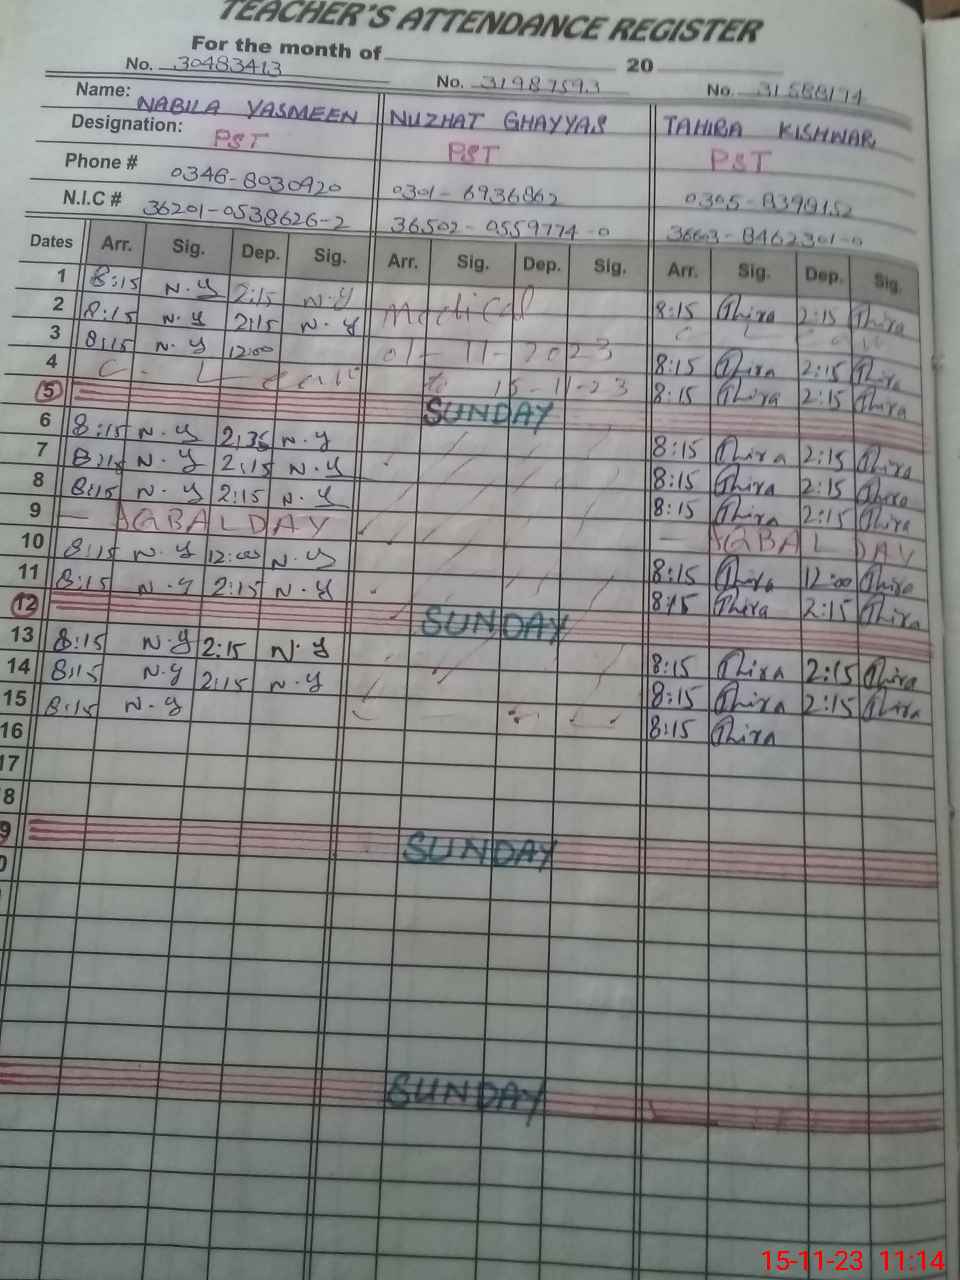 TEACHER'S ATTENDANCE REGISTER
For the month of 20
No. 30483413 No. 31987593 No. 31588174
Name: NABILA YASMEEN NUZHAT GHAYYAS TAHIRA KISHWAR
Designation: PST PST PST
Phone # 0346-8030920 0301-6936862
N.I.C # 36201-0538626-2 36502-0559774-0 36603-8462301-0
Dates Arr. Sig. Dep. Sig. Arr. Sig. Dep. Sig. Arr. Sig. Dep. Sig.
1 8:15 N.Y 2:15 N.Y Medical 8:15 Thira 2:15 Thira
2 8:15 N.Y 2:15 N.Y C L
3 8:15 N.Y 12:00 01-11-2023 8:15 Thira 2:15 Thira
4 C. L to 15-11-23 8:15 Thira 2:15 Thira
5 SUNDAY
6 8:15 N.Y 2:35 N.Y 8:15 Thira 2:15 Thira
7 8:15 N.Y 2:15 N.Y 8:15 Thira 2:15 Thira
8 8:15 N.Y 2:15 N.Y 8:15 Thira 2:15 Thira
9 — AQBAL DAY — AQBAL DAY
10 8:15 N.Y 12:00 N.Y 8:15 Thira 12:00 Thira
11 8:15 N.Y 2:15 N.Y 8:15 Thira 2:15 Thira
12 SUNDAY
13 8:15 N.Y 2:15 N.Y 8:15 Thira 2:15 Thira
14 8:15 N.Y 2:15 N.Y 8:15 Thira 2:15 Thira
15 8:15 N.Y 8:15 Thira
16
17
8
9 SUNDAY
0
SUNDAY
15-11-23 11:14